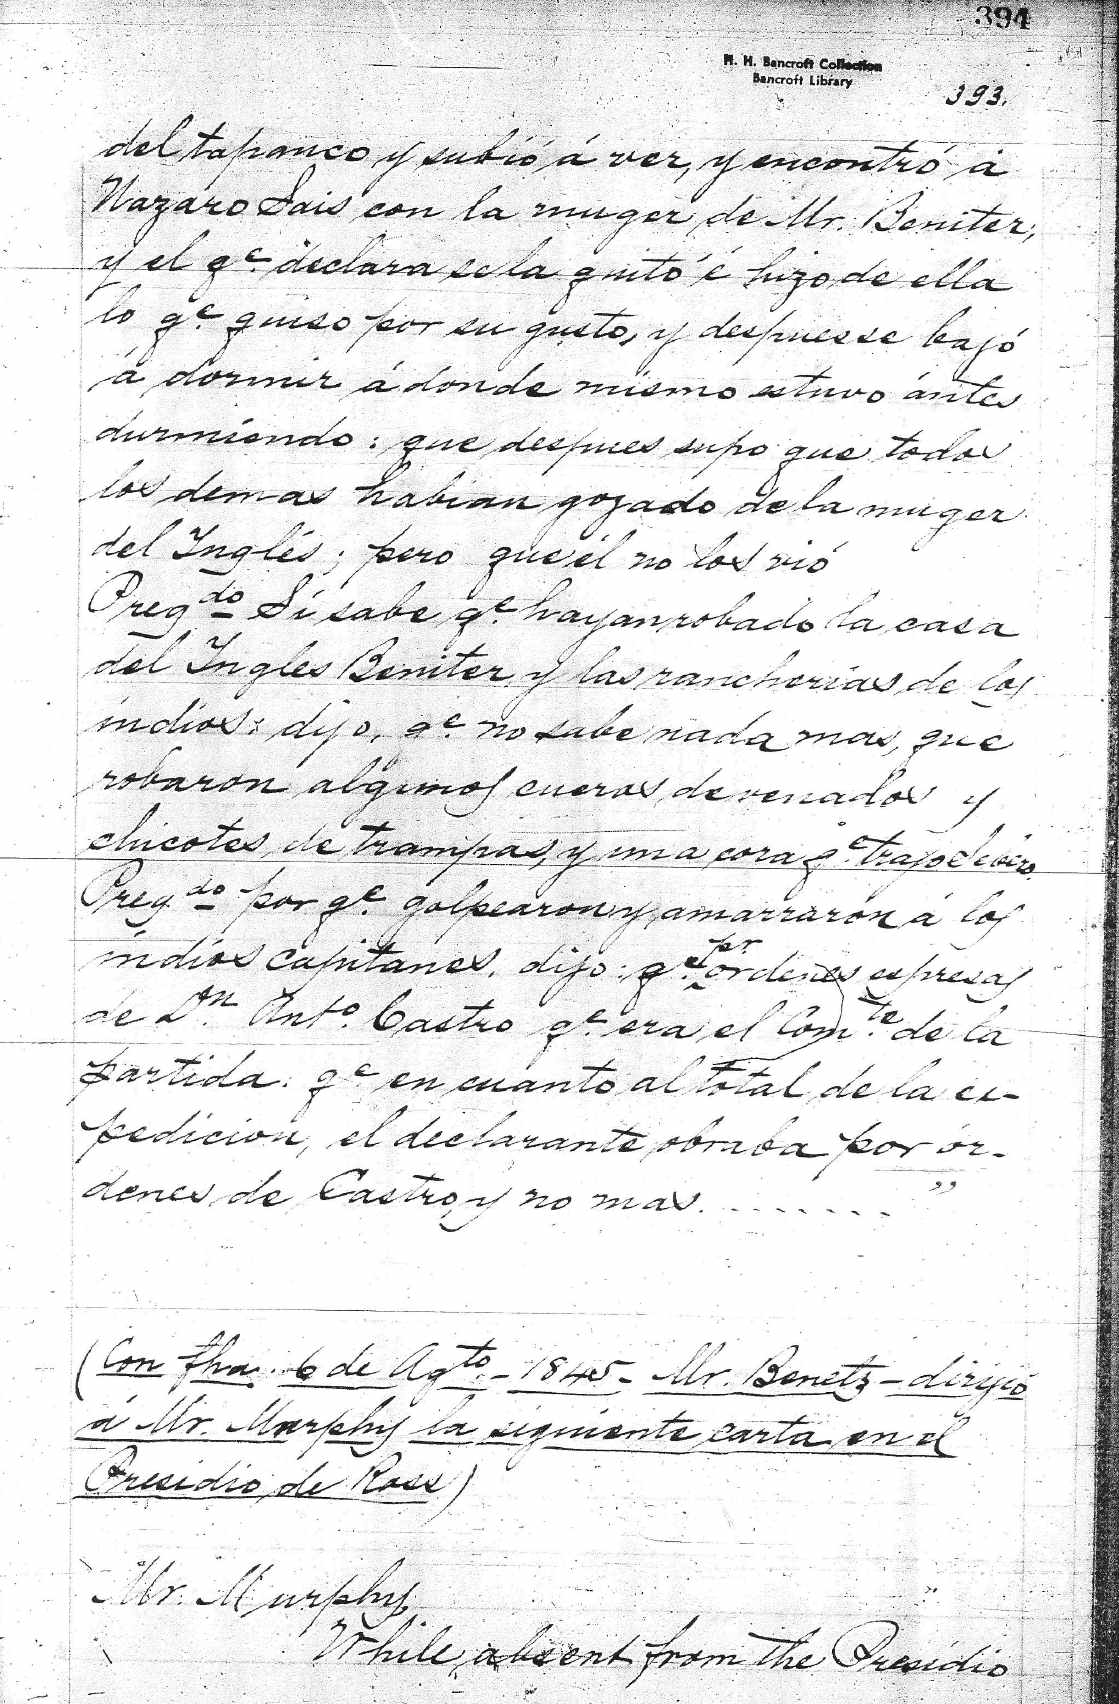 394
H. H. Bancroft Collection
Bancroft Library
393.
del tapanco y subió á ver, y encontró á
Nazaro Sais con la muger de Mr. Beniter;
y el qe. declara se la quitó é hizo de ella
lo qe. quiso por su gusto, y despues se bajó
á dormir á donde mismo estuvo ántes
durmiendo: que despues supo que todos
los demas habian gozado de la muger
del Inglés; pero que él no los vió
Pregdo. Si sabe qe. hayan robado la casa
del Ingles Beniter y las rancherias de los
indios: dijo, qe. no sabe nada mas, que
robaron algunos cueros de venados y
chicotes de trampas, y una cora qe. trajo Libero.
Pregdo. por qe. golpearon y amarraron á los
indios capitanes. dijo: qe. pr ordenes espresas
de Dn. Anto. Castro qe. era el Comte. de la
partida: qe en cuanto al total de la es-
pedicion, el declarante obraba por ór-
denes de Castro, y no mas. . . . . . . . . "
(Con fha. 6 de Agto. - 1845 - Mr. Benetz - dirijió
á Mr. Murphy la siguiente carta en el
Presidio de Ross)
Mr. Murphy,
While absent from the Presidio